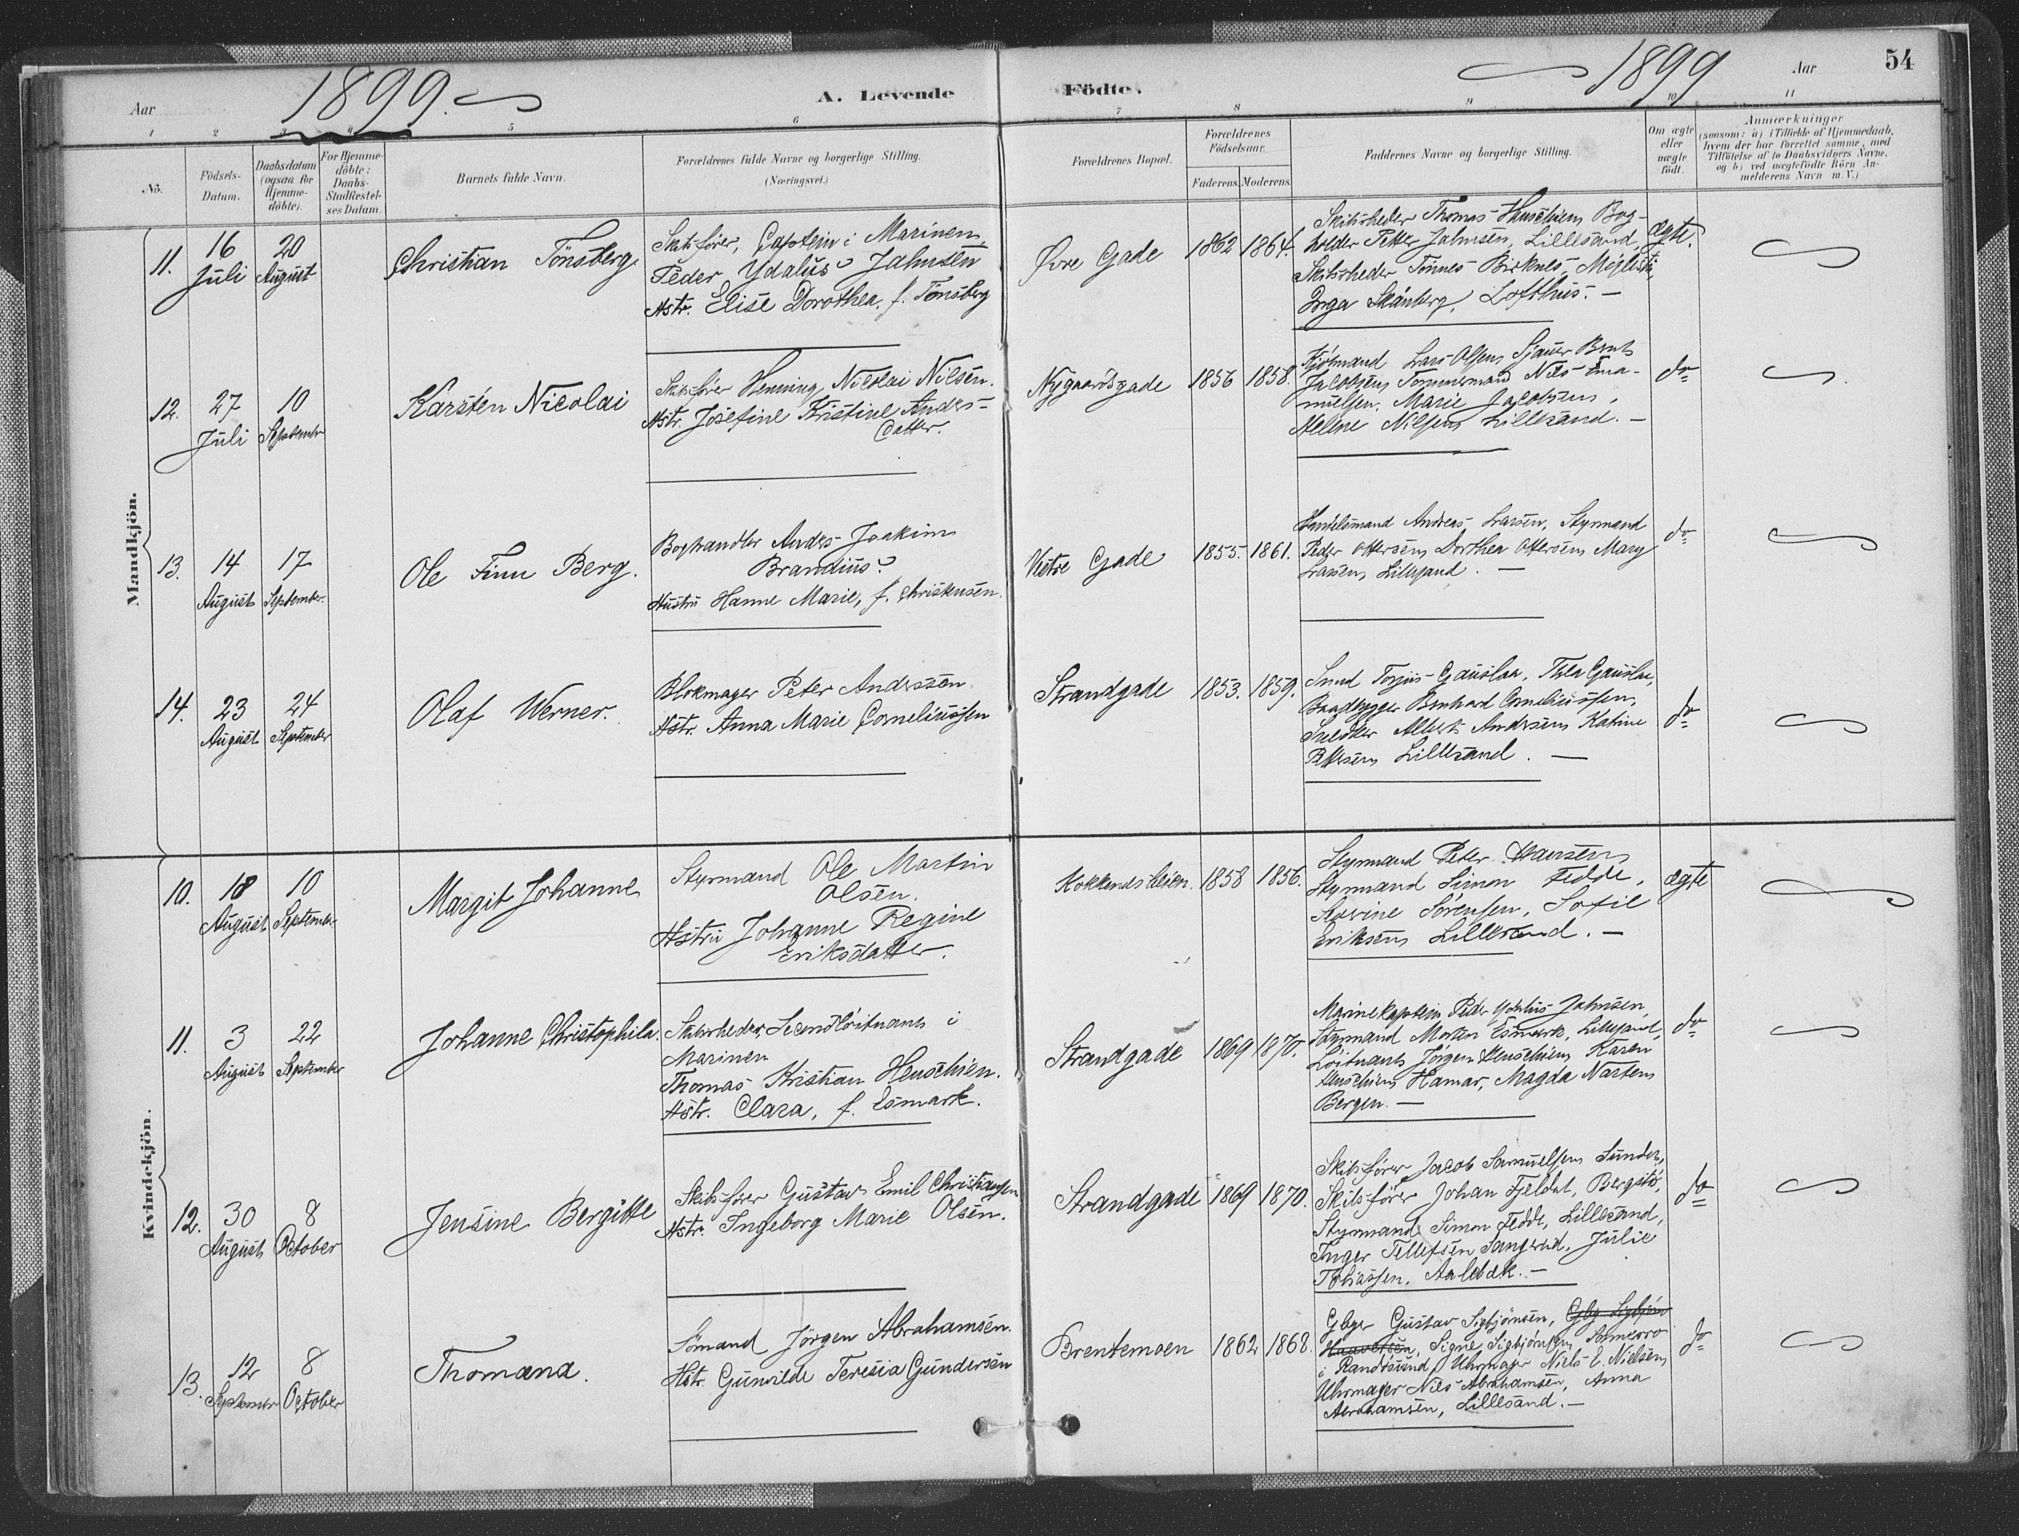 Aar
1899.
A. Levende
Födte.
1899
Aar
54
1 2 3 4 5 6 7 8 9 10 11
No.
Födsels-
Datum.
Daabsdatum
(ogsaa for
Hjemme-
döbte).
For Hjemme-
döbte:
Daabs-
Stadfæstel-
ses Datum.
Barnets fulde Navn.
Forældrenes fulde Navne og borgerlige Stilling.
(Næringsvei.)
Forældrenes Bopæl.
Forældrenes
Födselsaar.
Faderens. Moderens.
Faddernes Navne og borgerlige Stilling.
Om ægte
eller
uægte
födt.
Anmærkninger
(saasom: a) i Tilfælde af Hjemmedaab,
hvem der har forrettet samme, med
Tilföielse af to Daabsvidners Navne,
og b) ved uægtefödte Börn An-
melderens Navn m. V.)
Mandkjön.
11.
16
Juli
20
August
Christian Tönsberg
Skibsfører, Captein i Marinen
Peder Ydalus Jahnsen
Hstr. Elise Dorothea, f. Tönsberg
Øvre Gade
1862
1864.
Skibsrheder Thomas Henschien Bog-
holder Petter Jahnsen, Lillesand,
Skibsrheder Tönnes Birknes,
Inga Skånberg, Lofthus. —
ægte.
12.
27
Juli
10
September
Karsten Nicolai
Skibsfører Henning Nicolai Nilsen.
Hstr. Josefine Kristine Anders-
datter.
Nygaardsgade
1856
1858.
Lars Olsen, Sjauer Bent
Jacobsen Tømmermand Nils Ema-
nuelsen, Marie Jacobsen,
Helene Nilsen Lillesand. —
do
13.
14
August
17
September.
Ole Finn Berg.
Boghandler Anders Joakim
Brandius
Hustru Hanne Marie, f. Christensen.
Vestre Gade
1855.
1861.
Handelsmand Andreas Larsen, Styrmand
Peder Ottersen Dorthea Ottersen Mary
Larsen, Lillesand. —
do
14.
23
August
24
September
Olaf Werner.
Blokmager Peter Anderssen
Hstr. Anna Marie Corneliussen
Strandgade
1853.
1859.
Smed Torjus Gauslaa, Thea Gauslaa,
Baadbygger Bernhard Corneliussen,
Snedker Albert Andersen Katine
Pettersen Lillesand. —
do
Kvindekjön.
10.
18
August
10
September
Margit Johanne
Styrmand Ole Martin
Olsen.
Hstru Johanne Regine
Eriksdatter.
Kokkendsheien.
1858
1856.
Styrmand Peter Hansen
Styrmand Simon Fedde,
Sørensen, Sofie
Eriksen Lillesand. —
ægte
11.
3
August
22
September
Johanne Christophila.
Skibsrheder, Secondløitnant i
Marinen
Thomas Kristian Henschien.
Hstr. Clara, f. Esmark.
Strandgade
1869
1870.
Marinekaptein Peder Ydalus Jahnsen,
Styrmand Morten Esmark, Lillesand,
Løitnant Jørgen Henschien Karen
Henschien Hamar, Magda Martens
Bergen. —
do
12.
30
August
8
October
Jensine Bergitte
Skibsfører Gustav Emil Christiansen
Hstr. Ingeborg Marie Olsen.
Strandgade
1869
1870.
Skibsfører Jacob Samuelsen Sunde,
Skibsfører Johan Fjeldal, Bergstø,
Styrmand Simon Fedde, Lillesand,
Inger Tellefsen Sangereid, Julie
Tobiassen, Aalebæk. —
do
13.
12
September
8
October
Thomana.
Sømand Jørgen Abrahamsen.
Hstr. Gunvilde Teresia Gundersen
Brentemoen
1862
1868.
Gbgr Gustav Sigbjørnsen, Gbg. Sigbjørn
Haaversen, Signe Sigbjørnsen
i Randesund, Uhrmager Niels E. Nielsen
Uhrmager Nils Abrahamsen, Anna
Abrahamsen, Lillesand. —
do